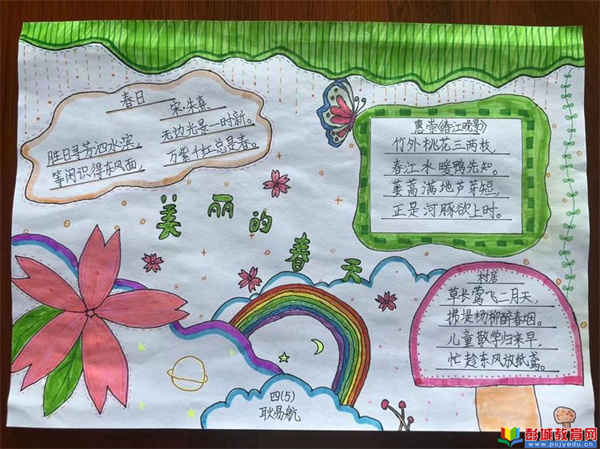 春日
宋 朱熹
胜日寻芳泗水滨，
无边光景一时新。
等闲识得东风面，
万紫千红总是春。
惠崇《春江晚景》
竹外桃花三两枝，
春江水暖鸭先知。
蒌蒿满地芦芽短，
正是河豚欲上时。
美丽的春天
村居
草长莺飞二月天，
拂堤杨柳醉春烟。
儿童散学归来早，
忙趁东风放纸鸢。
四(5)
耿易航
彭城教育网
www.pcjyedu.cn